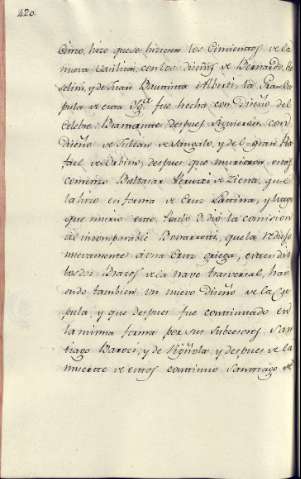 420.
hizo que se hiciesen los Cimientos de la
nueva con los diseños de Bernardo
selini, y de Juan Bautista Alberti. la Gran Cu
pula de esta Yg.ª fue hecha con diseño del
celebre Bramante, despues siguieron con
diseño de Julian de Sangalo, y del gran Ra
fael de Urbino, despues que murieron estos
Baltasar Peruzzi de Ziena, que
la hizo en forma de Cruz Latina, y luego
que murio este, Paulo 3.º dio la comision
al incomparable Bonarroti, que la redujo
nuevamente a una Cruz griega, extendien
las dos Brazos de la nave transversal, haci
endo tambien un nuevo diseño de la Cu
pula, y que despues fue continuado en
la misma forma por sus subcesores San
tiago Barozi, y de Vigñola, y despues de la
muerte de estos continuo Santiago de